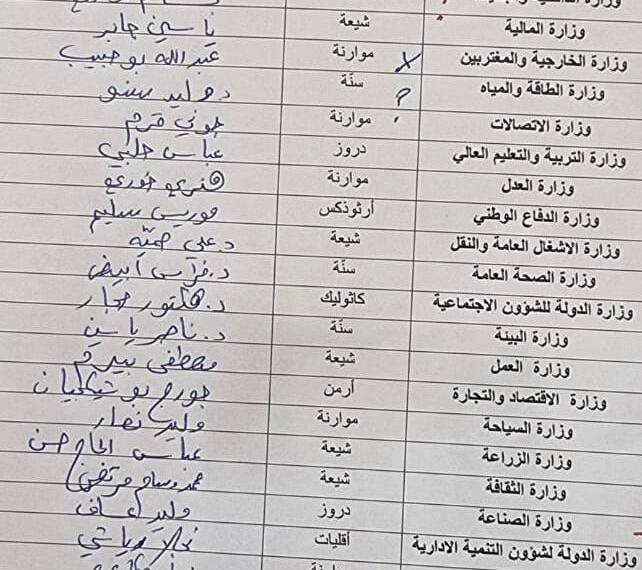 وزارة المالية شيعة ياسين جابر
وزارة الخارجية والمغتربين x موارنة عبدالله بوحبيب
وزارة الطاقة والمياه ? سنّة د. وليد سنو
وزارة الاتصالات موارنة جوني قرم
وزارة التربية والتعليم العالي دروز عباس حلبي
وزارة العدل موارنة هنري خوري
وزارة الدفاع الوطني أرثوذكس موريس سليم
وزارة الاشغال العامة والنقل شيعة د. علي حميّه
وزارة الصحة العامة سنّة د. فراس أبيض
وزارة الدولة للشؤون الاجتماعية كاثوليك د. هكتور حجار
وزارة البيئة سنّة د. ناصر ياسين
وزارة العمل شيعة مصطفى بيرم
وزارة الاقتصاد والتجارة أرمن جورج بوشكيان
وزارة السياحة موارنة وليد نصار
وزارة الزراعة شيعة عباس الحاج حسن
وزارة الثقافة شيعة محمد وسام مرتضى
وزارة الصناعة دروز وليد عساف
وزارة الدولة لشؤون التنمية الادارية أقليات نجلا رياشي